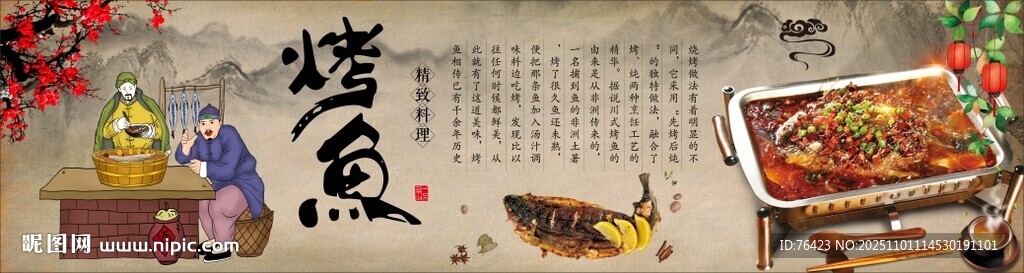 烤魚
精致料理
烧烤做法有着明显的不
同，它采用“先烤后炖
”的独特做法，融合了
烤、炖两种烹饪工艺的
精华。据说川式烤鱼的
由来是从非洲传来的，
一名捕到鱼的非洲土著
，烤了很久鱼还未熟，
便把那条鱼加入汤汁调
味料边吃烤，发现比以
往任何时候都鲜美，从
此就有了这道美味，烤
鱼相传已有千余年历史
昵图网 www.nipic.com
ID:76423 NO:20251101114530191101